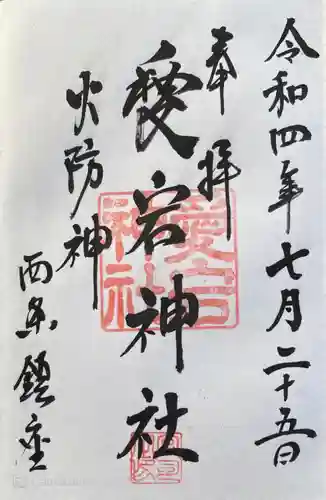 令和四年七月二十五日
奉拝
愛宕神社
火防神
西条鎮座
愛宕
神社